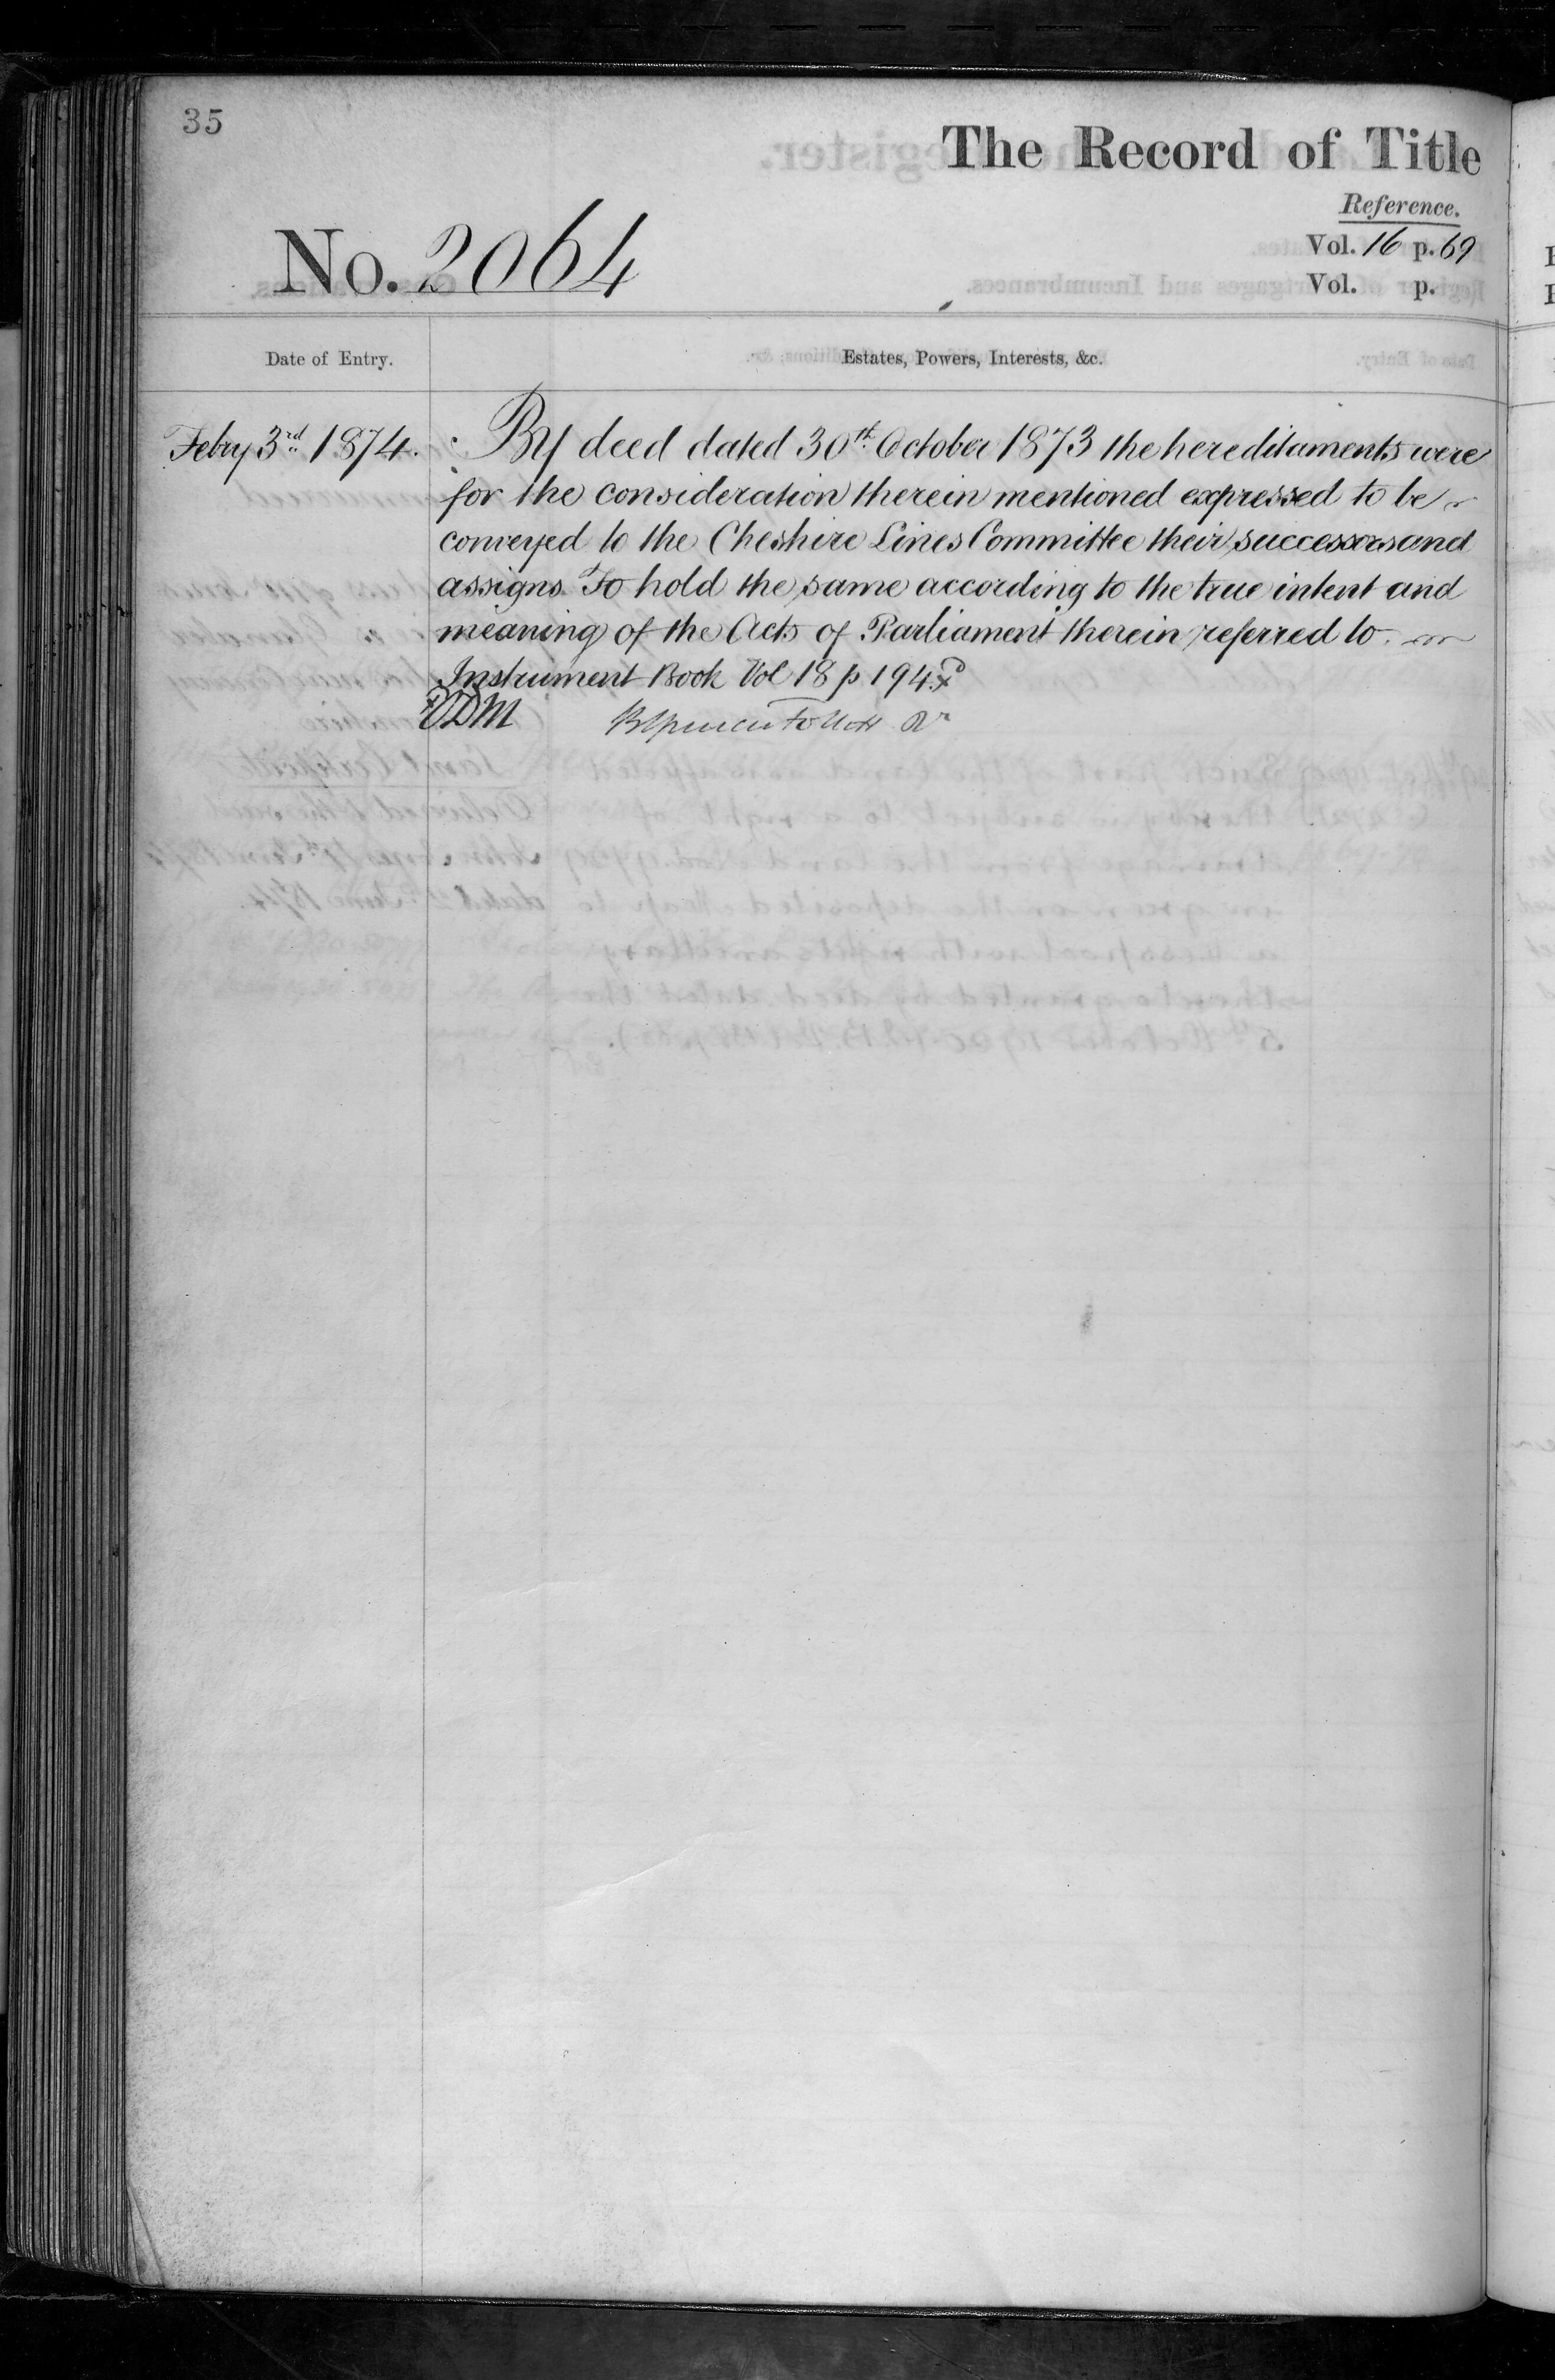 35
The Record of Title
Reference.
No. 2064
Vol. 16 p. 69
Vol. p.
Date of Entry.
Estates, Powers, Interests, &c.
Febry 3rd 1874. By deed dated 30th October 1873 the hereditaments were
for the consideration therein mentioned expressed to be
conveyed to the Cheshire Lines Committee their successors and
assigns To hold the same according to the true intent and
meaning of the Acts of Parliament therein referred to.
Instrument Book Vol 18 p 194.